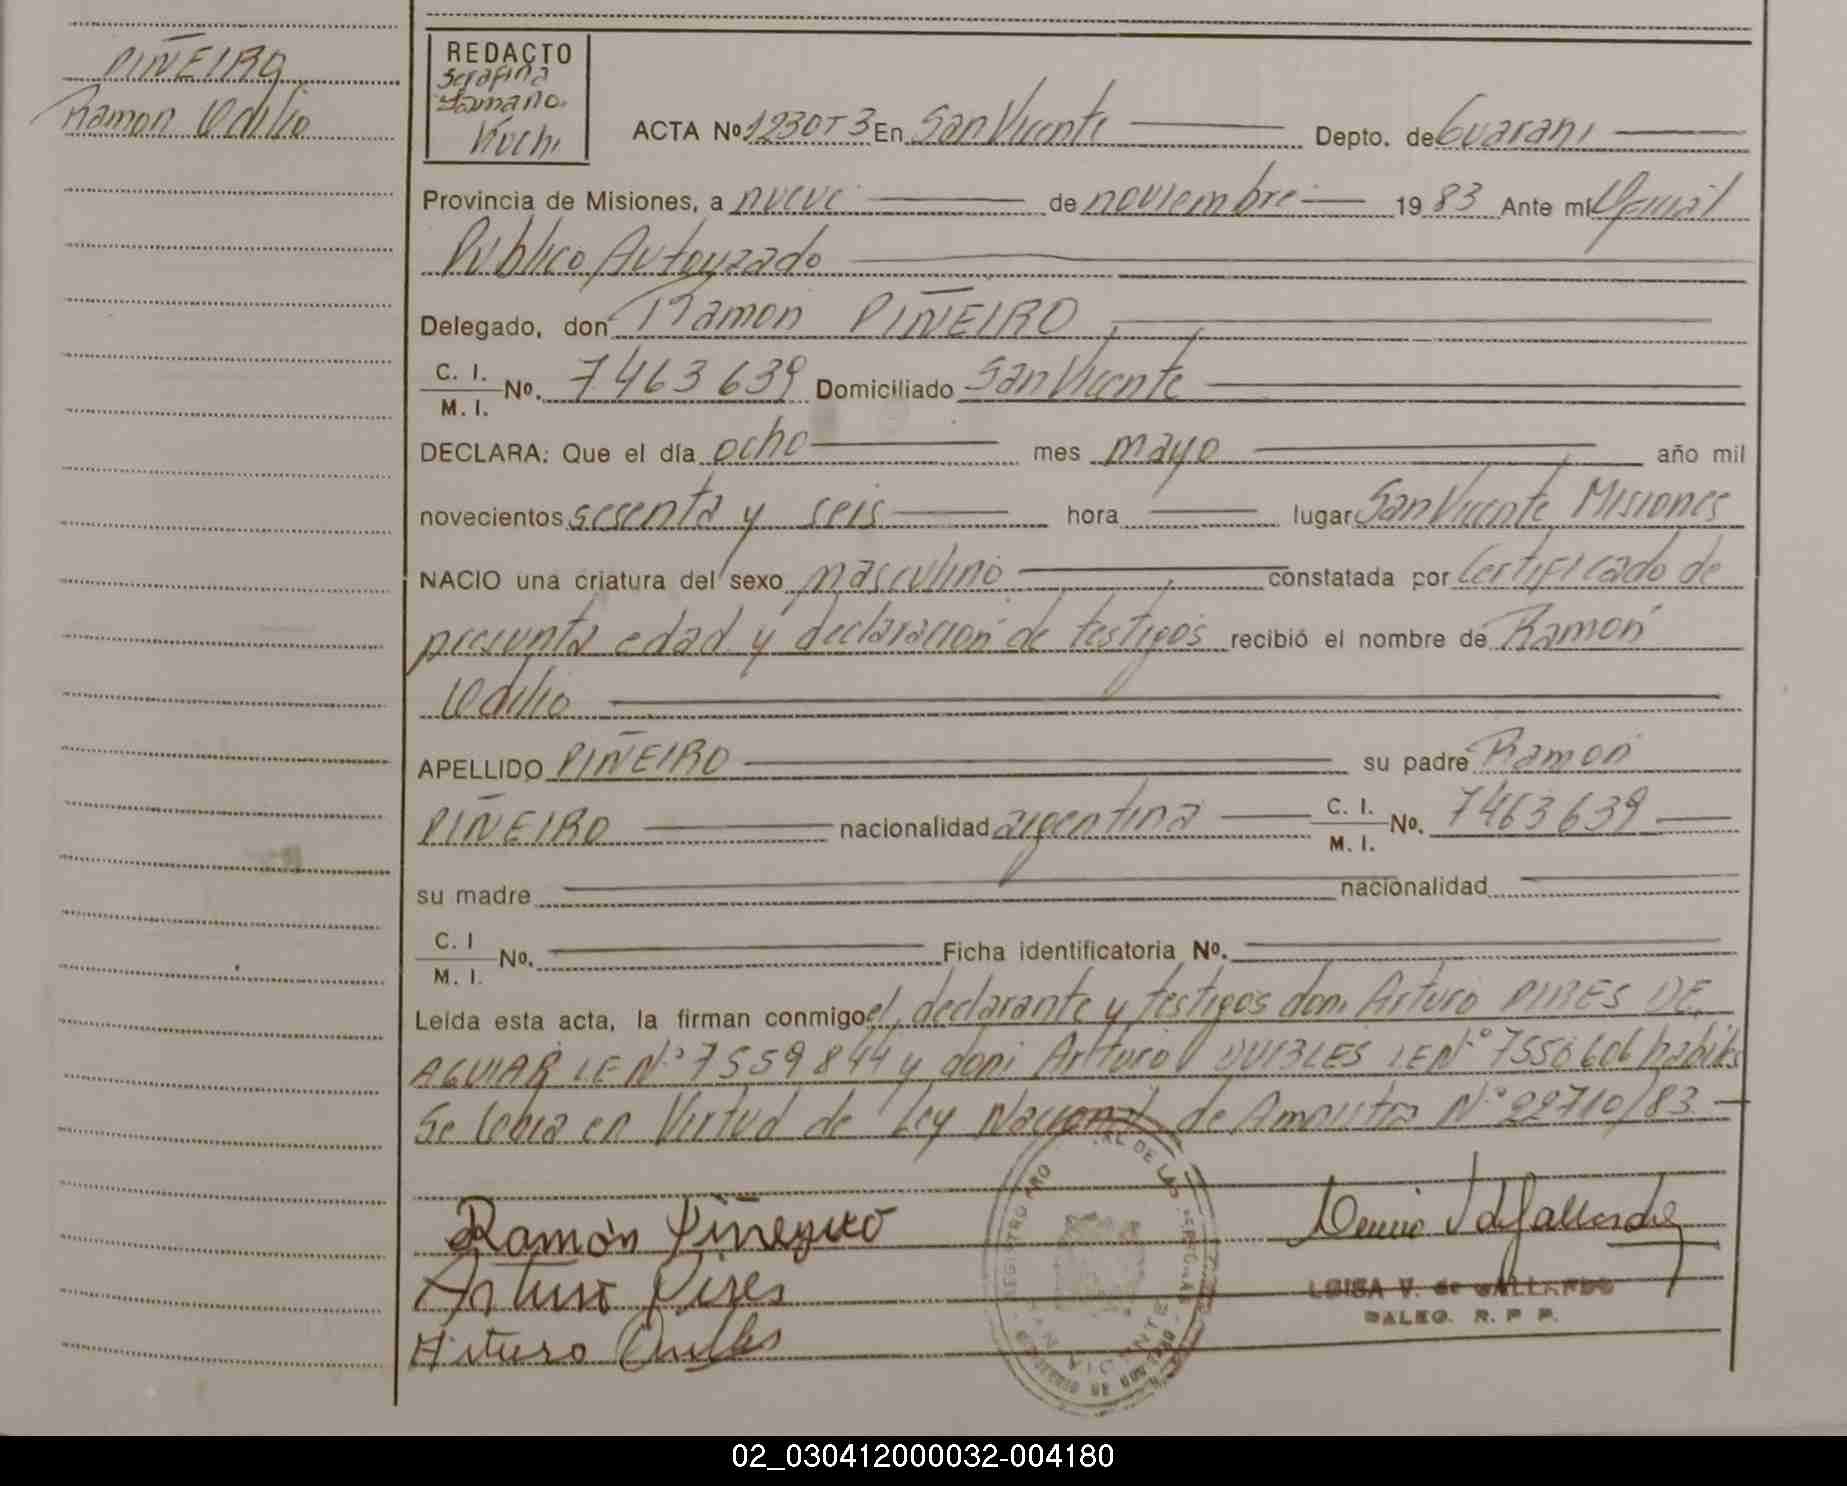 PIÑEIRO
Ramon Odilio
REDACTO
Serafina
Kuchi
ACTA Nº 1230T3 En San Vicente Depto. de Guarani
Provincia de Misiones, a nueve de noviembre 1983 Ante mí Oficial
Público Autorizado
Delegado, don Ramon PIÑEIRO
C. I.
M. I. Nº. 7463639 Domiciliado San Vicente
DECLARA: Que el día ocho mes mayo año mil
novecientos sesenta y seis hora lugar San Vicente Misiones
NACIO una criatura del sexo masculino constatada por Certificado de
presunta edad y declaración de testigos recibió el nombre de Ramón
Odilio
APELLIDO PIÑEIRO su padre Ramón
PIÑEIRO nacionalidad argentina C. I. M. I. Nº. 7463639
su madre nacionalidad
C. I M. I. Nº. Ficha identificatoria Nº.
Leída esta acta, la firman conmigo el declarante y testigos don: Arturo PIRES DE
AGUIAR LE Nº 7559844 y don: Arturo LE Nº 7550606 habiles
Se labra en Virtud de Ley Nacional de Amnistia Nº 22710/83
Ramón Piñeyro
Arturo Pires
Arturo
REGISTRO PRO AL DE LAS PERSONAS
SAN VICENTE
LUISA V. de GALLARDO
DALEG. R. P. P.
02_030412000032-004180